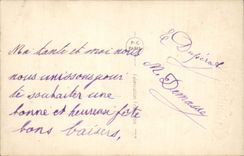 Ma tante et moi nous
nous unissons pour
te souhaiter une
bonne et heureuse fête
bons baisers,
E Dupérat
M.
P.C.
PARIS